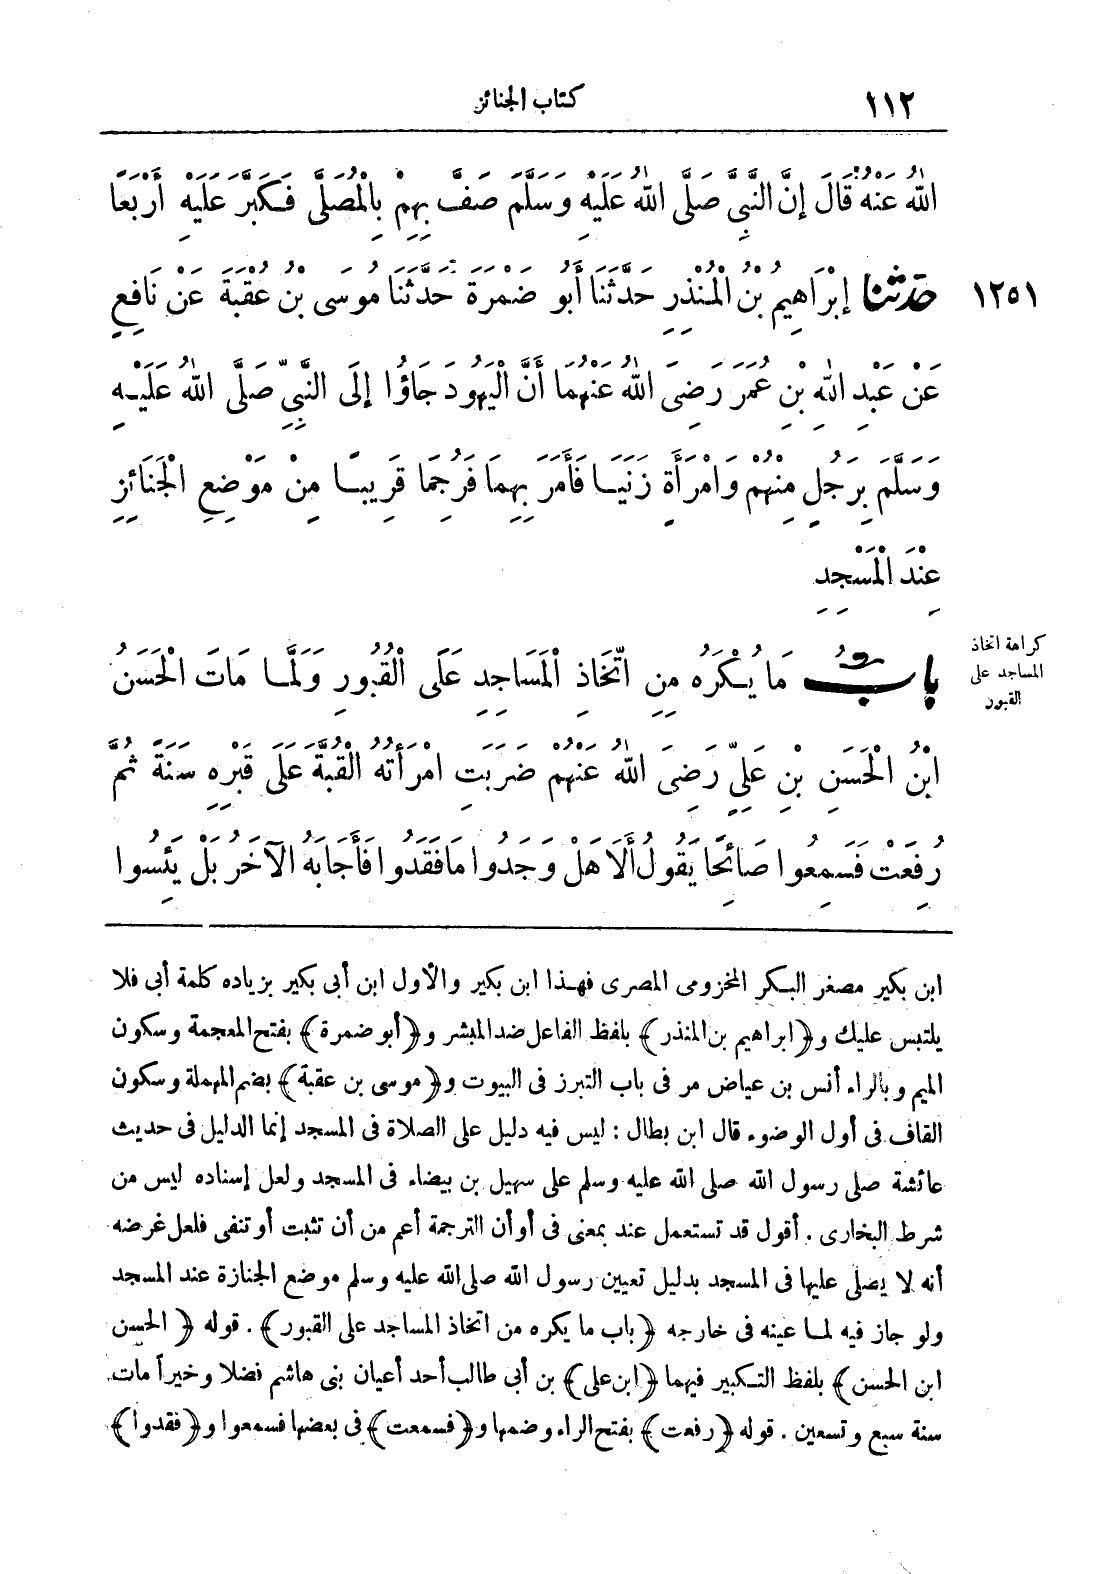 ١١٢ كتاب الجنائز
اللهُ عَنْهُ قَالَ إِنَّ النَّبِيَّ صَلَّى اللهُ عَلَيْهِ وَسَلَّمَ صَفَّ بِهِمْ بِالْمُصَلَّى فَكَبَّرَ عَلَيْهِ أَرْبَعًا
١٢٥١ حَدَّثَنَا إِبْرَاهِيمُ بْنُ الْمُنْذِرِ حَدَّثَنَا أَبُو ضَمْرَةَ حَدَّثَنَا مُوسَى بْنُ عُقْبَةَ عَنْ نَافِعٍ
عَنْ عَبْدِ اللهِ بْنِ عُمَرَ رَضِيَ اللهُ عَنْهُمَا أَنَّ الْيَهُودَ جَاؤُا إِلَى النَّبِيِّ صَلَّى اللهُ عَلَيْهِ
وَسَلَّمَ بِرَجُلٍ مِنْهُمْ وَامْرَأَةٍ زَنَيَا فَأَمَرَ بِهِمَا فَرُجِمَا قَرِيبًا مِنْ مَوْضِعِ الْجَنَائِزِ
عِنْدَ الْمَسْجِدِ
كراهة اتخاذ
المساجد على
القبون
بَابُ مَا يُكْرَهُ مِنِ اتِّخَاذِ الْمَسَاجِدِ عَلَى الْقُبُورِ وَلَمَّا مَاتَ الْحَسَنُ
ابْنُ الْحَسَنِ بْنِ عَلِيٍّ رَضِيَ اللهُ عَنْهُمْ ضَرَبَتِ امْرَأَتُهُ الْقُبَّةَ عَلَى قَبْرِهِ سَنَةً ثُمَّ
رُفِعَتْ فَسَمِعُوا صَائِحًا يَقُولُ أَلَا هَلْ وَجَدُوا مَا فَقَدُوا فَأَجَابَهُ الْآخَرُ بَلْ يَئِسُوا
ابن بكير مصغر البكر المخزومى المصرى فهذا ابن بكير والأول ابن أبى بكير بزياده كلمة أبى فلا
يلتبس عليك و﴿ابراهيم بن المنذر﴾ بلفظ الفاعل ضد المبشر و﴿أبو ضمرة﴾ بفتح المعجمة وسكون
الميم وبالراء أنس بن عياض مر فى باب التبرز فى البيوت و﴿موسى بن عقبة﴾ بضم المهملة وسكون
القاف فى أول الوضوء قال ابن بطال : ليس فيه دليل على الصلاة فى المسجد إنما الدليل فى حديث
عائشة صلى رسول الله صلى الله عليه وسلم على سهيل بن بيضاء فى المسجد ولعل إسناده ليس من
شرط البخارى . أقول قد تستعمل عند بمعنى فى أو أن الترجمة أعم من أن تثبت أو تنفى فلعل غرضه
أنه لا يصلى عليها فى المسجد بدليل تعيين رسول الله صلى الله عليه وسلم موضع الجنازة عند المسجد
ولو جاز فيه لما عينه فى خارجه ﴿باب ما يكره من اتخاذ المساجد على القبور﴾ . قوله ﴿الحسن
ابن الحسن﴾ بلفظ التكبير فيهما ﴿ابن على﴾ بن أبى طالب أحد أعيان بنى هاشم فضلا وخيراً مات
سنة سبع وتسعين . قوله ﴿رفعت﴾ بفتح الراء وضمها و﴿فسمعت﴾ فى بعضها فسمعوا و﴿فقدوا﴾